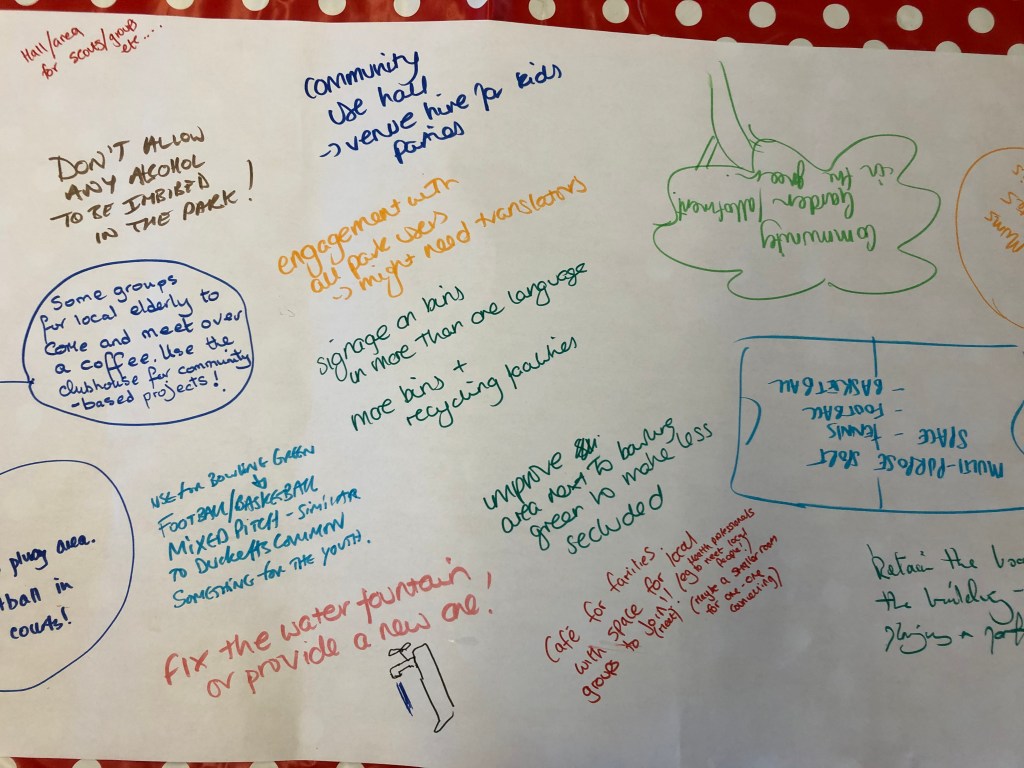 Hall/area
for scouts/group
etc.....
COMMUNITY
USE hall
-> venue hire for kids
parties
DON'T ALLOW
ANY ALCOHOL
TO BE IMBIBED
IN THE PARK!
engagement with
all park users
-> might need translators
Community
Garden/allotment
in the green
Mums
Some groups
for local elderly to
come and meet over
a coffee. Use the
clubhouse for community
-based projects!
signage on bins
in more than one language
more bins +
recycling facilities
MULTI-PURPOSE
SPACE - TENNIS
- FOOTBALL
- BASKETBALL
USE FOR BOWLING GREEN
FOOTBALL/BASKETBALL
MIXED PITCH - SIMILAR
TO DUCKETTS COMMON
SOMETHING FOR THE YOUTH.
improve
area next to bowling
green to make less
secluded
play area.
tball in
courts!
FIX the water fountain
or provide a new one!
Café for families
with space for local
groups to join!!
health professionals
(eg to meet local
people)
(Maybe a smaller room
for one-one
Retain the
the building -